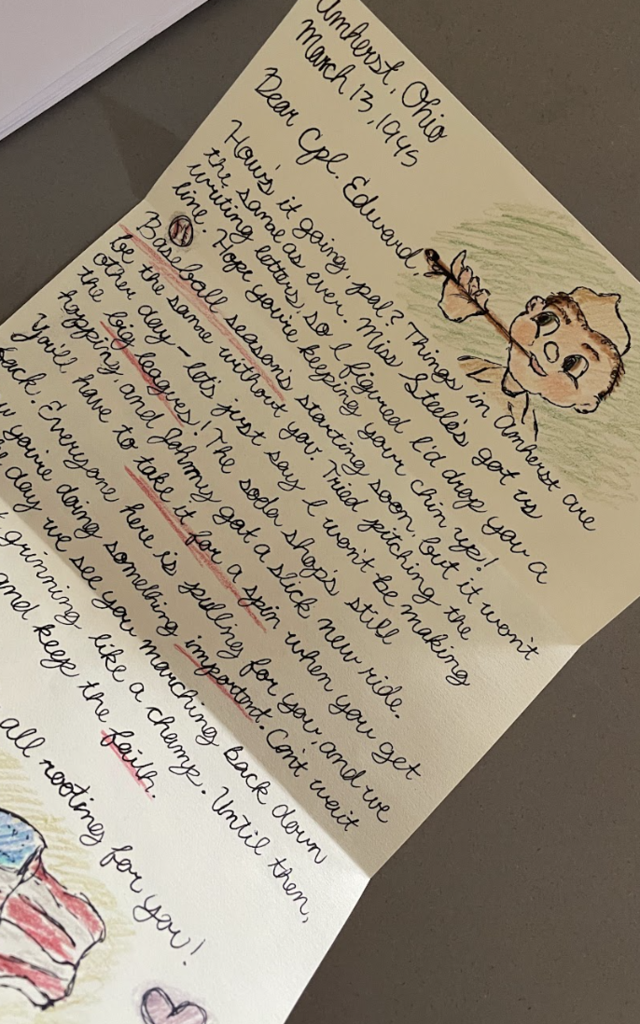 Amherst, Ohio
March 13, 1945
Dear Cpl. Edward,
How's it going, pal? Things in Amherst are
the same as ever. Miss Steele's got us
writing letters, so I figured I'd drop you a
line. Hope you're keeping your chin up!
Baseball season's starting soon, but it won't
be the same without you. Tried pitching the
other day – let's just say I won't be making
the big leagues! The soda shop's still
hopping, and Johnny got a slick new ride.
You'll have to take it for a spin when you get
back. Everyone here is pulling for you, and we
you're doing something important. Can't wait
day we see you marching back down
grinning like a champ. Until then,
and keep the faith.
all rooting for you!